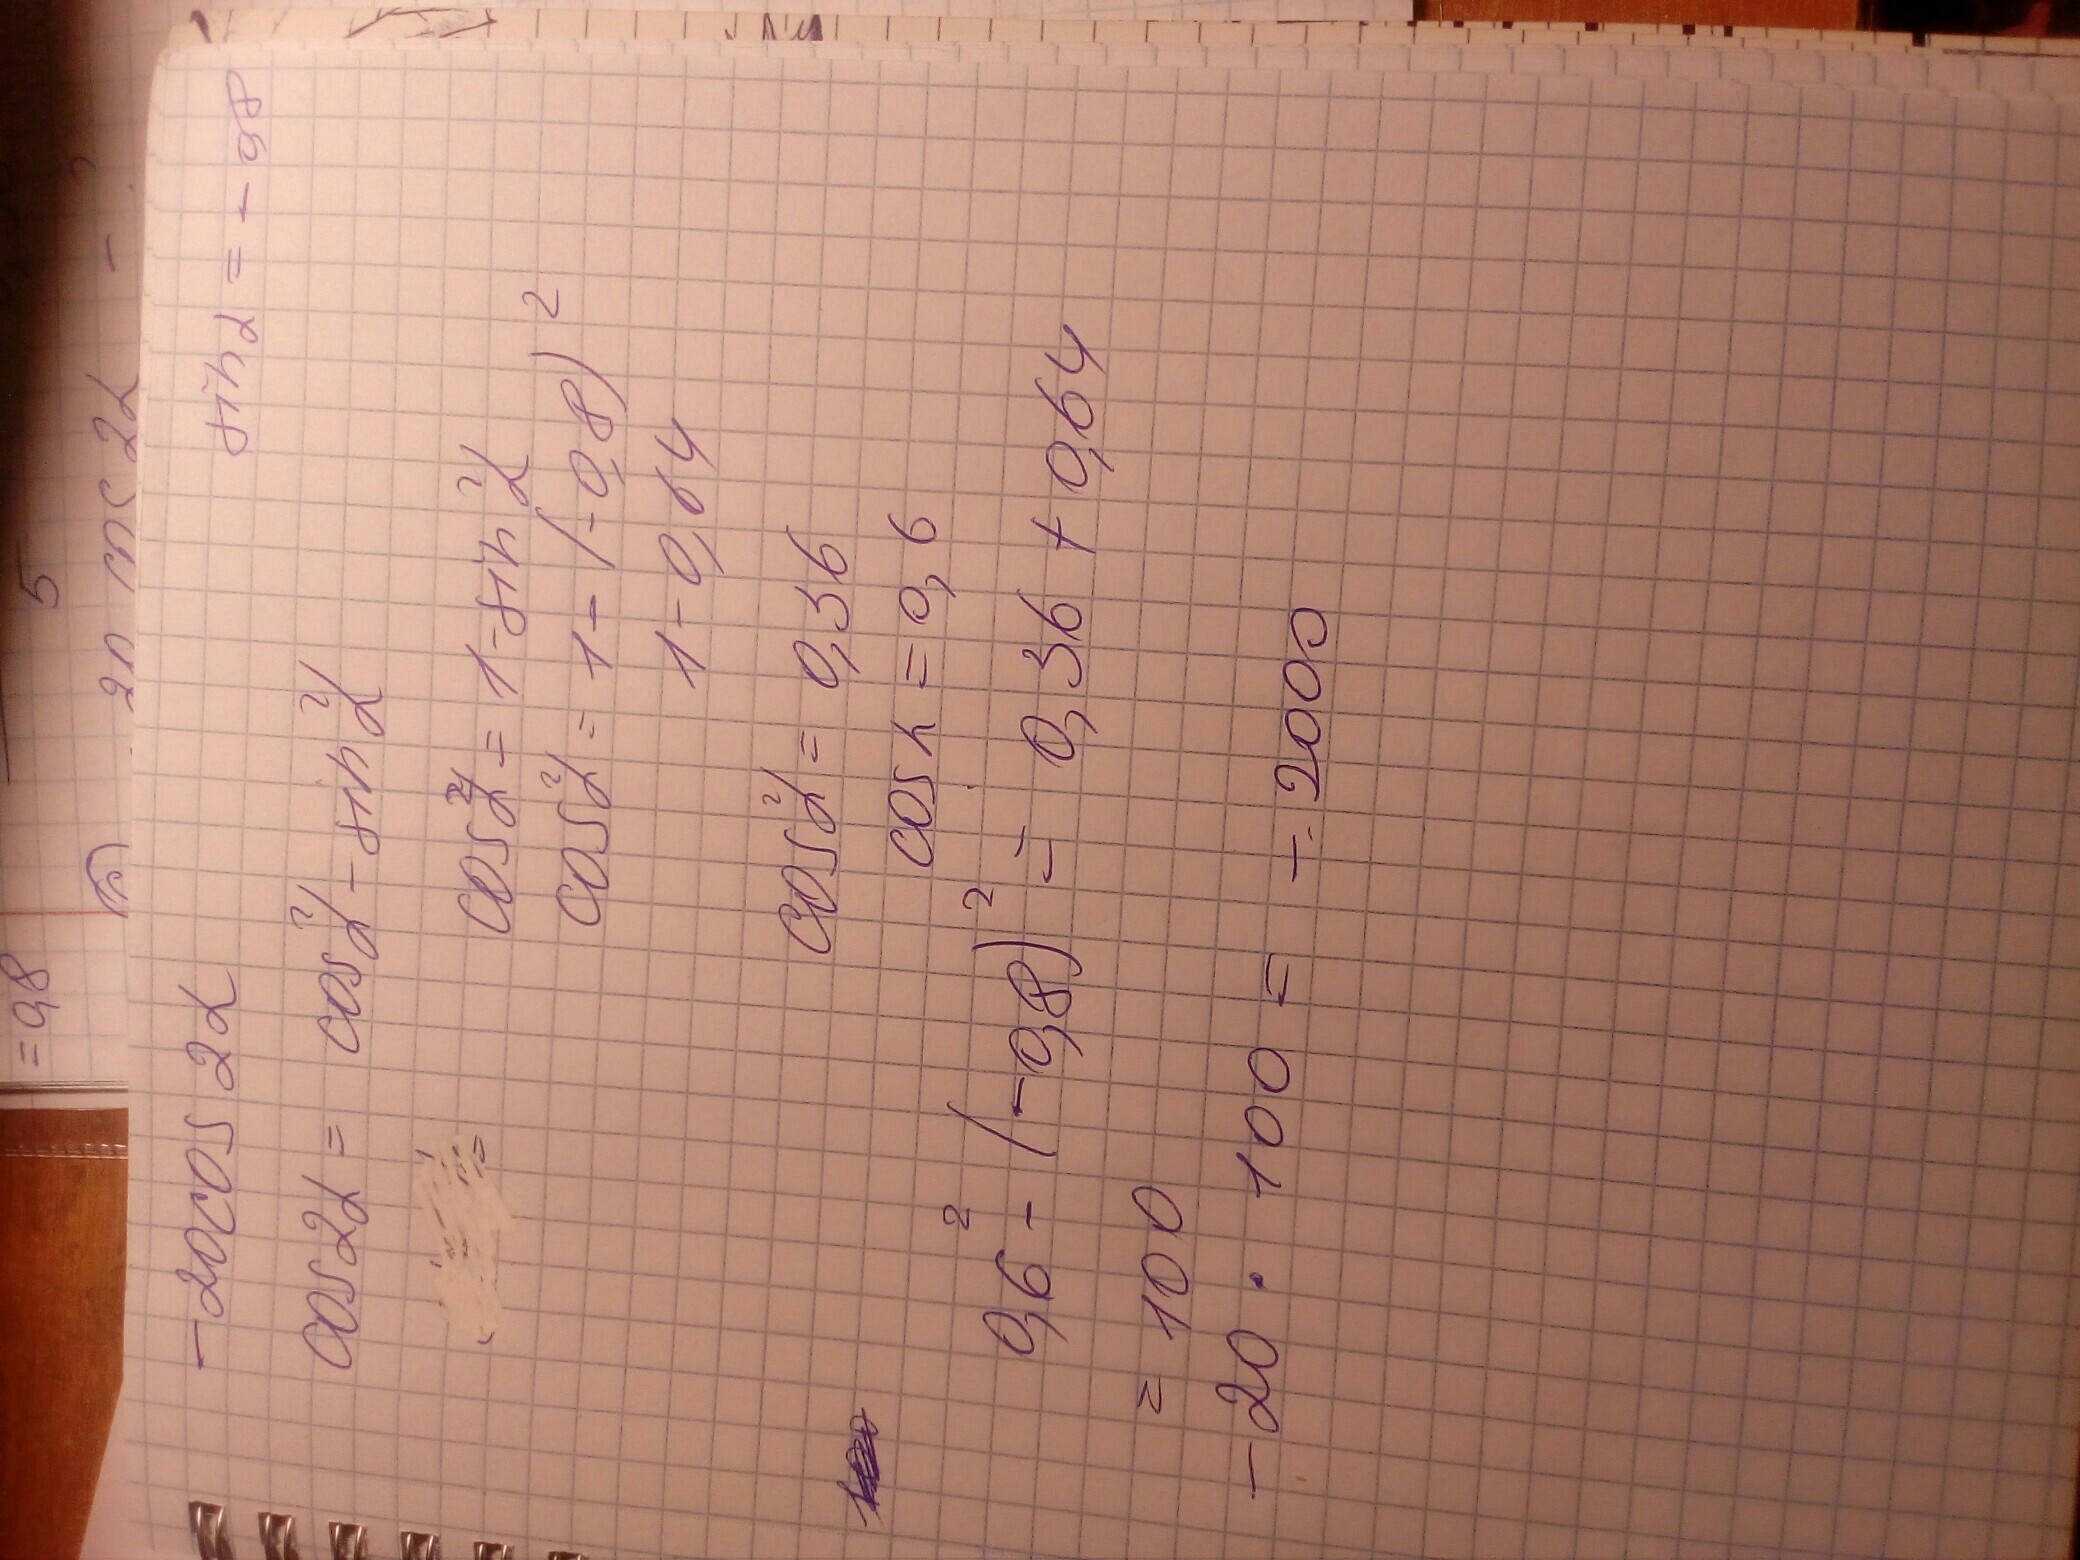 = 0,8
5
20 cos 2α -
-20cos 2α sin α = -0,8
cos2α = cos²α - sin²α
cos²α = 1 - sin²α
cos²α = 1 - (-0,8)²
1 - 0,64
cos²α = 0,36
cos α = 0,6
0,6² - (-0,8)² = 0,36 + 0,64
= 100
-20 · 100 = -2000